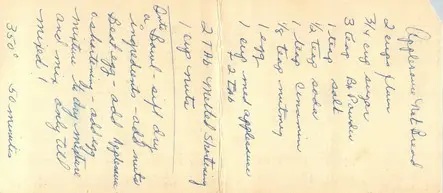 Applesauce Nut Bread
2 cups flour
3/4 cup sugar
3 teas B. Powder
1 teas salt
1/2 teas soda
1 teas cinnamon
1/8 teas nutmeg
1 egg
1 cup med applesauce
+ 2 Tab
2 Tab Melted Shortening
1 cup nuts
Into Bowl - sift dry
ingredients - add nuts
Beat egg - add Applesauce
& shortening - add egg
mixture to dry mixture
and mix only till
mixed!
350° 50 minutes